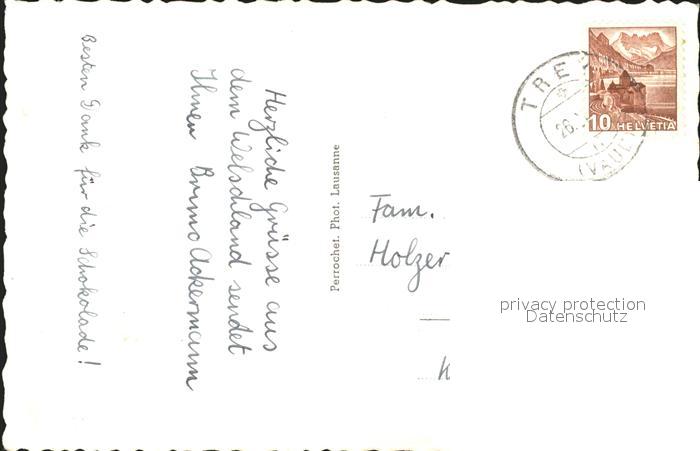 Herzliche Grüsse aus
dem Welschland sendet
Ihnen Bruno Ackermann
Besten Dank für die Schokolade!
Perrochet. Phot. Lausanne
Fam.
Holzer
10 HELVETIA
(VAUD)
privacy protection
Datenschutz